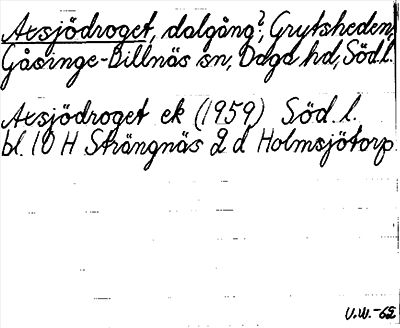 Axsjödroget, dalgång?, Grytsheden,
Gåsinge-Dillnäs sn, Daga hd, Söd.l.
Axsjödroget ek (1959) Söd. l.
bl. 10 H Strängnäs 2 d Holmsjötorp
V.W.-62